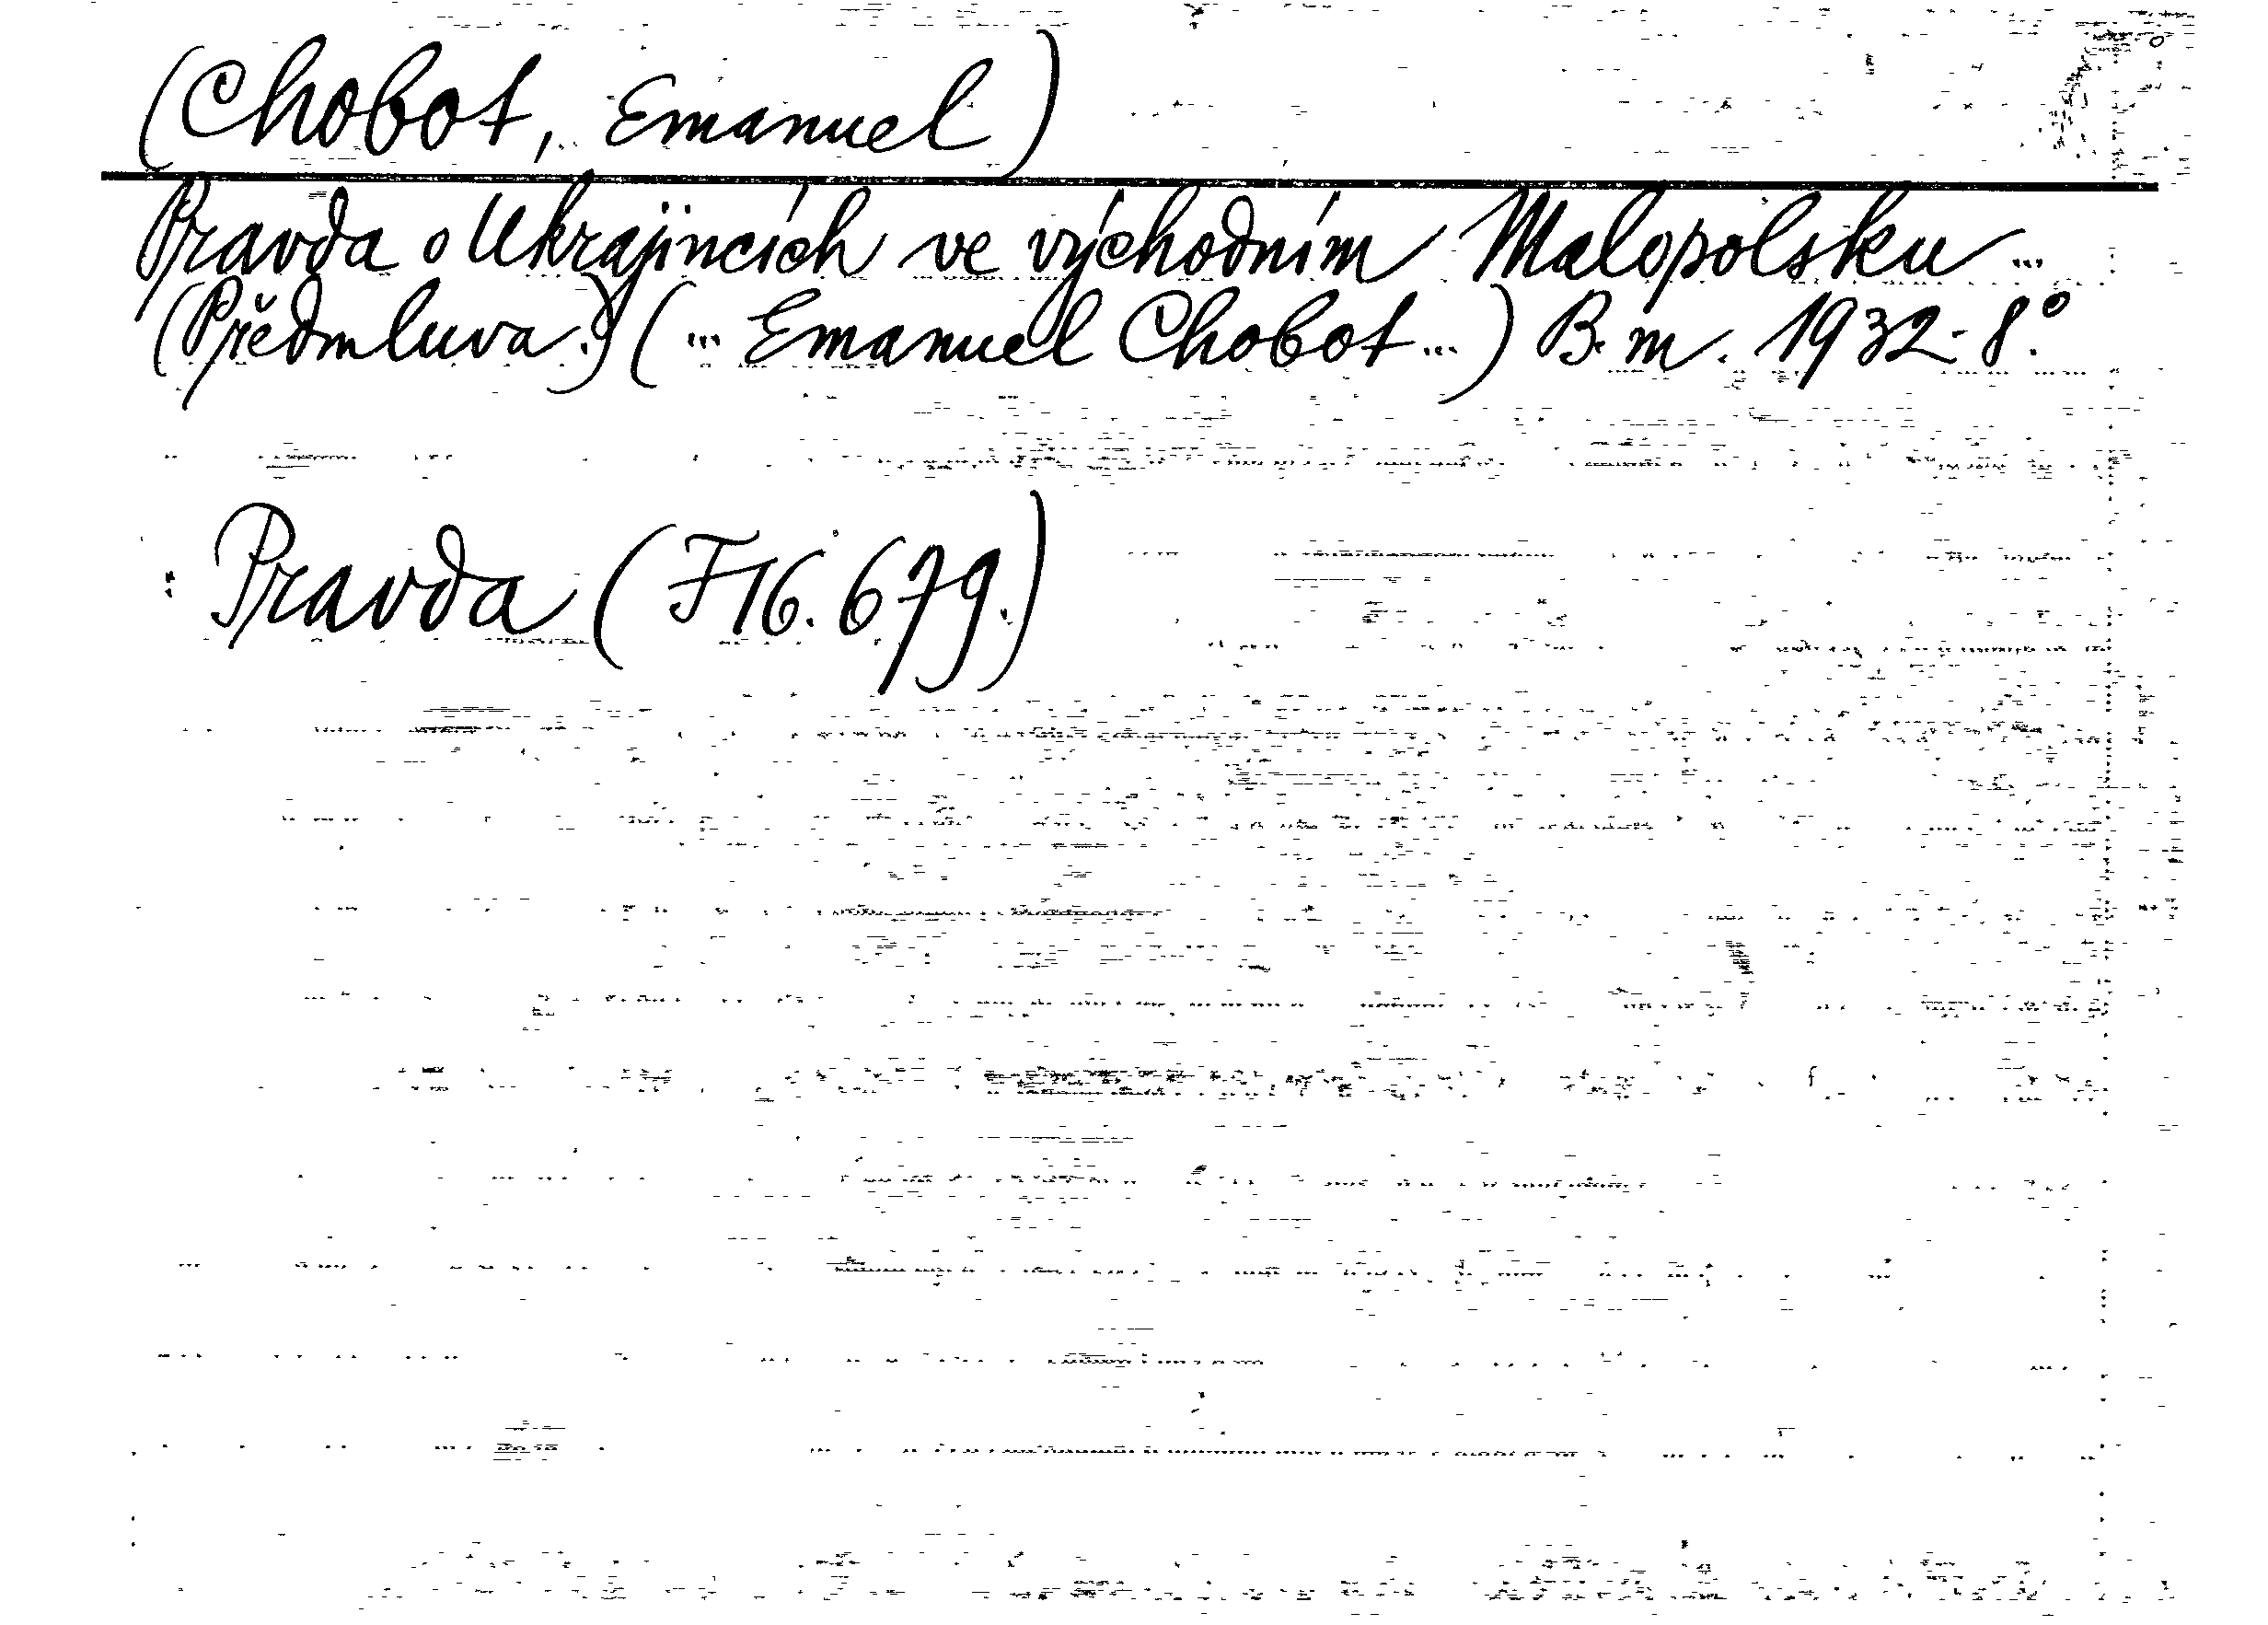 (Chobot, Emanuel)
Pravda o Ukrajincích ve východním Malopolsku ...
(Předmluva.) (... Emanuel Chobot ...) B. m. 1932. 8°.
: Pravda (F 16.679.)